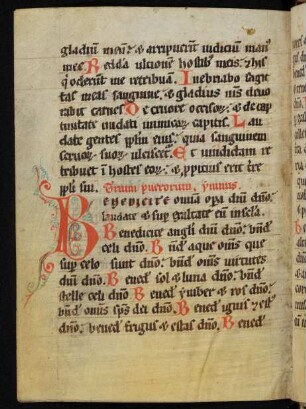 gladiũ meũ: & arripuerit iudiciũ man᷒
mea Reddã ultionẽ hostib᷒ meis: & his
q̇ oderunt me retribuã. Inebriabo sagit
tas meas sanguine, & gladius m̃s deuo
rabit carnes De cruore occisoꝝ & de cap
tiuitate nudati inimicoꝝ capitis. Lau
date gentes pl̃m ei᷒: quia sanguinem
seruoꝝ suoꝝ ulciscet᷑. Et uindictam re
tribuet ĩ hostes eoꝝ, & ꝓpicius erit t̃re
pl̃i sui. Trium puerorum, ymnus.
Benedicite omnia opa dñi dño:
laudate & sup exaltate eũ in sc̃la.
Benedicite angli dñi dño: bñd
celi dño. Bñd aque om̃s que
sup celo sunt dño. bñd om̃s uirtutes
dñi dño. Bened sol & luna dño. bñd
stelle celi dño. Bened ymber & ros dño.
bñd om̃s sp̃s dei dño. Bened ignis & est᷒
dño. bened frigus & estas dño. Bened